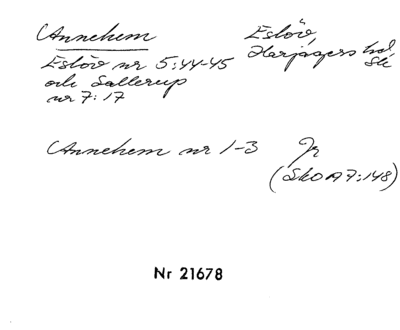 Annehem
Eslöv nr 5:44-45
och Sallerup
nr 7:17
Eslöv,
Harjagers hd
Sk
Annehem nr 1-3 Jr
(SkO A7:148)
Nr 21678